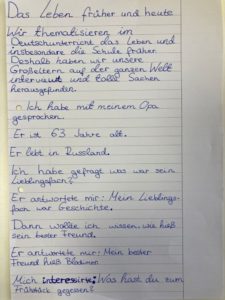 Das Leben früher und heute
Wir thematisieren im
Deutschunterricht das Leben und
insbesondere die Schule früher
Deshalb haben wir unsere
Großeltern auf der ganzen Welt
interviewt und tolle Sachen
herausgefunden.
Ich habe mit meinem Opa
gesprochen.
Er ist 63 Jahre alt.
Er lebt in Russland.
Ich habe gefragt was war sein
Lieblingsfach?
Er antwortete mir: Mein Lieblings-
fach war Geschichte.
Dann wollte ich wissen, wie hieß
sein bester Freund.
Er antwortete mir: Mein bester
Freund hieß Bladimer
Mich interessirte: Was hast du zum
Frühstück gegessen?